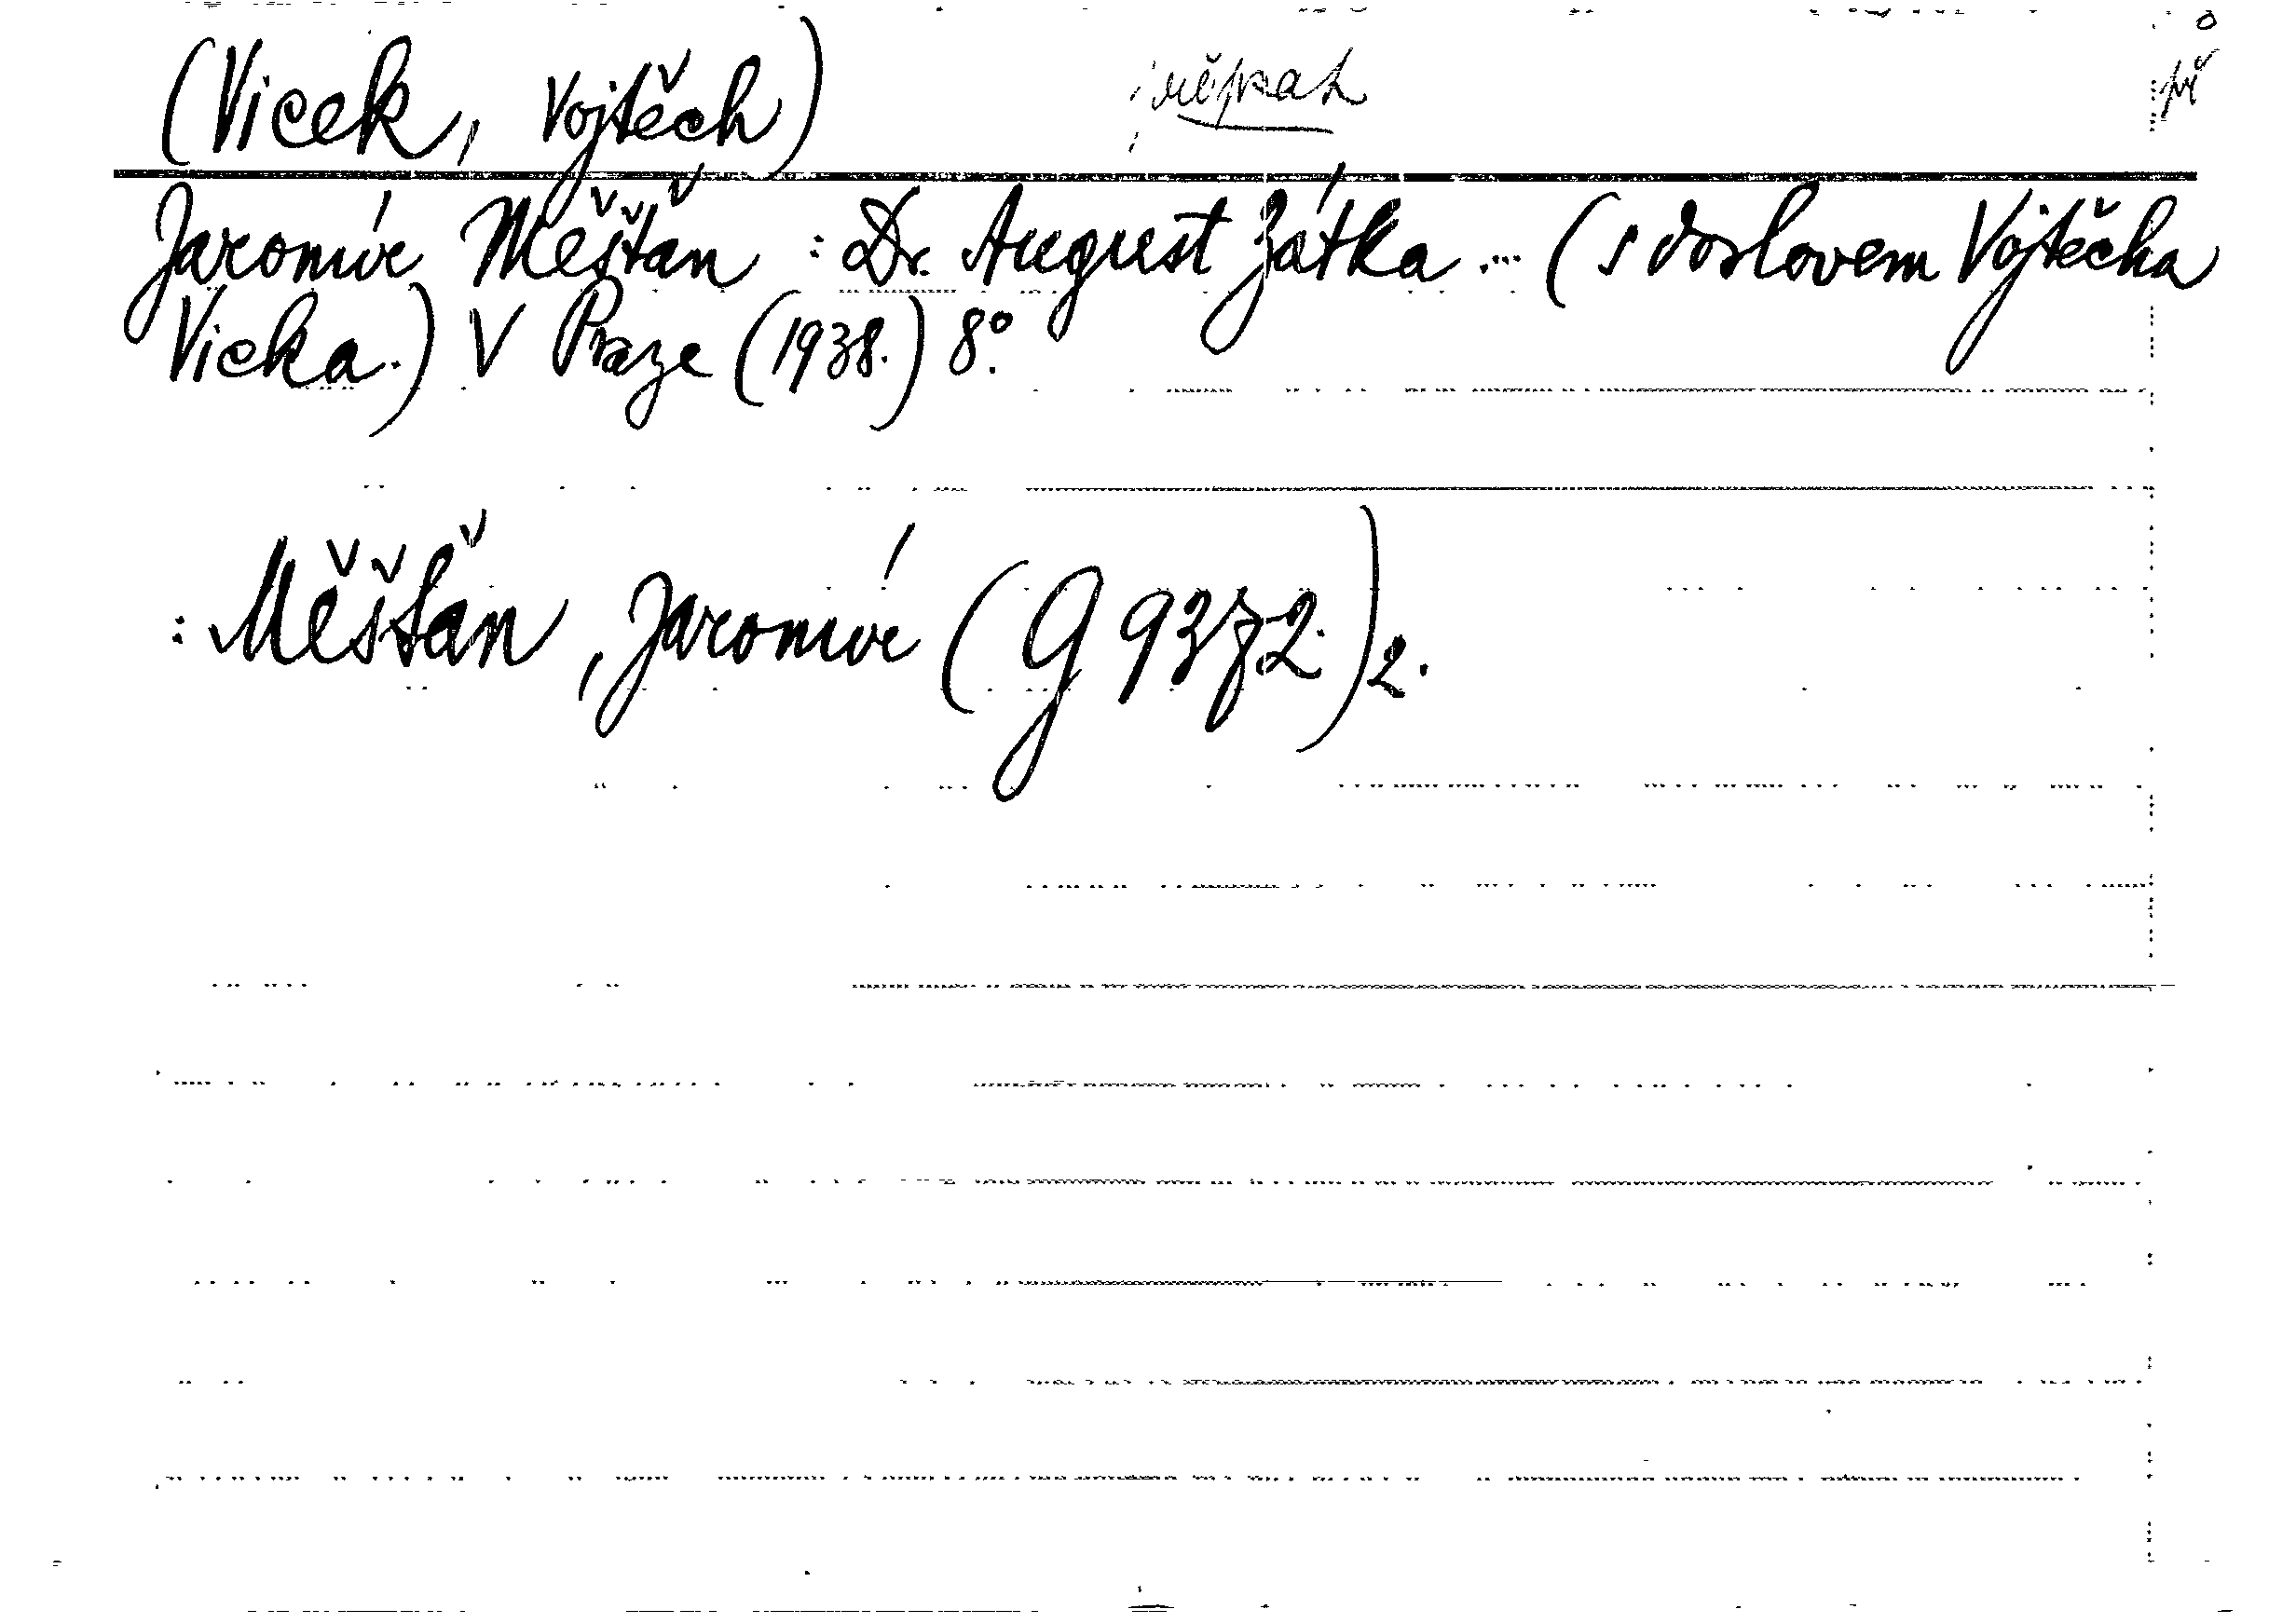 (Vicek, Vojtěch)
Jaromír Měšťan : Dr. August Zátka ... (s doslovem Vojtěcha
Vicka.) V Praze (1938.) 8º.
: Měšťan, Jaromír (G 9372.)2.